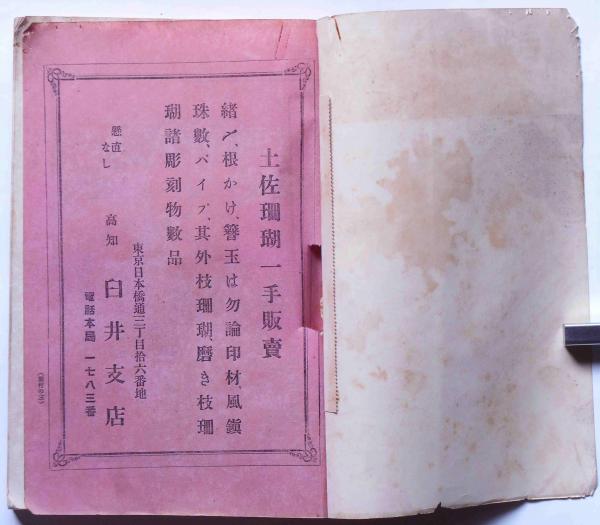 土佐珊瑚一手販賣
緒〆、根かけ、簪玉は勿論印材、風鎭
珠數、パイプ、其外枝珊瑚、磨き枝珊
瑚諸彫刻物數品
東京日本橋通三丁目拾六番地
懸直なし
高知 臼井支店
電話本局 一七八三番